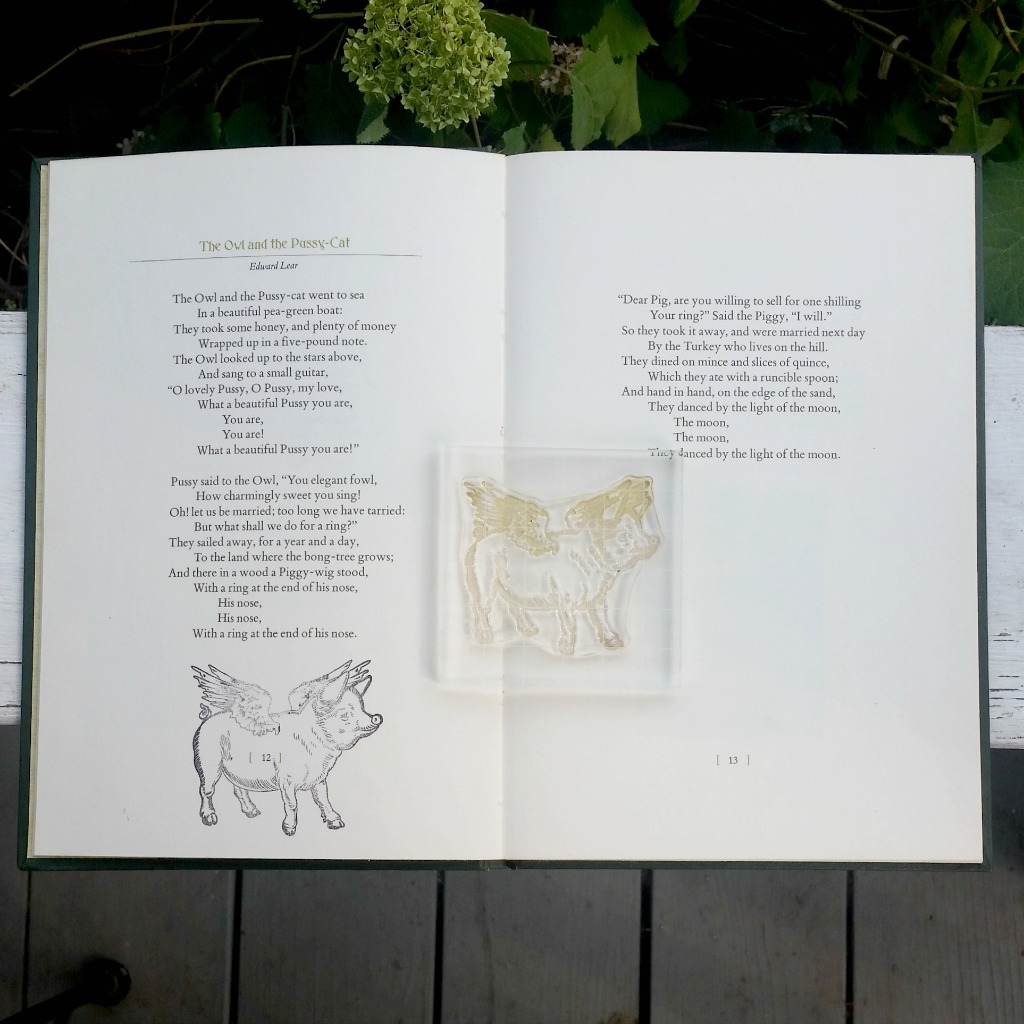 The Owl and the Pussy-Cat
Edward Lear
The Owl and the Pussy-cat went to sea
In a beautiful pea-green boat:
They took some honey, and plenty of money
Wrapped up in a five-pound note.
The Owl looked up to the stars above,
And sang to a small guitar,
“O lovely Pussy, O Pussy, my love,
What a beautiful Pussy you are,
You are,
You are!
What a beautiful Pussy you are!”
Pussy said to the Owl, “You elegant fowl,
How charmingly sweet you sing!
Oh! let us be married; too long we have tarried:
But what shall we do for a ring?”
They sailed away, for a year and a day,
To the land where the bong-tree grows;
And there in a wood a Piggy-wig stood,
With a ring at the end of his nose,
His nose,
His nose,
With a ring at the end of his nose.
[ 12 ]
“Dear Pig, are you willing to sell for one shilling
Your ring?” Said the Piggy, “I will.”
So they took it away, and were married next day
By the Turkey who lives on the hill.
They dined on mince and slices of quince,
Which they ate with a runcible spoon;
And hand in hand, on the edge of the sand,
They danced by the light of the moon,
The moon,
The moon,
They danced by the light of the moon.
[ 13 ]